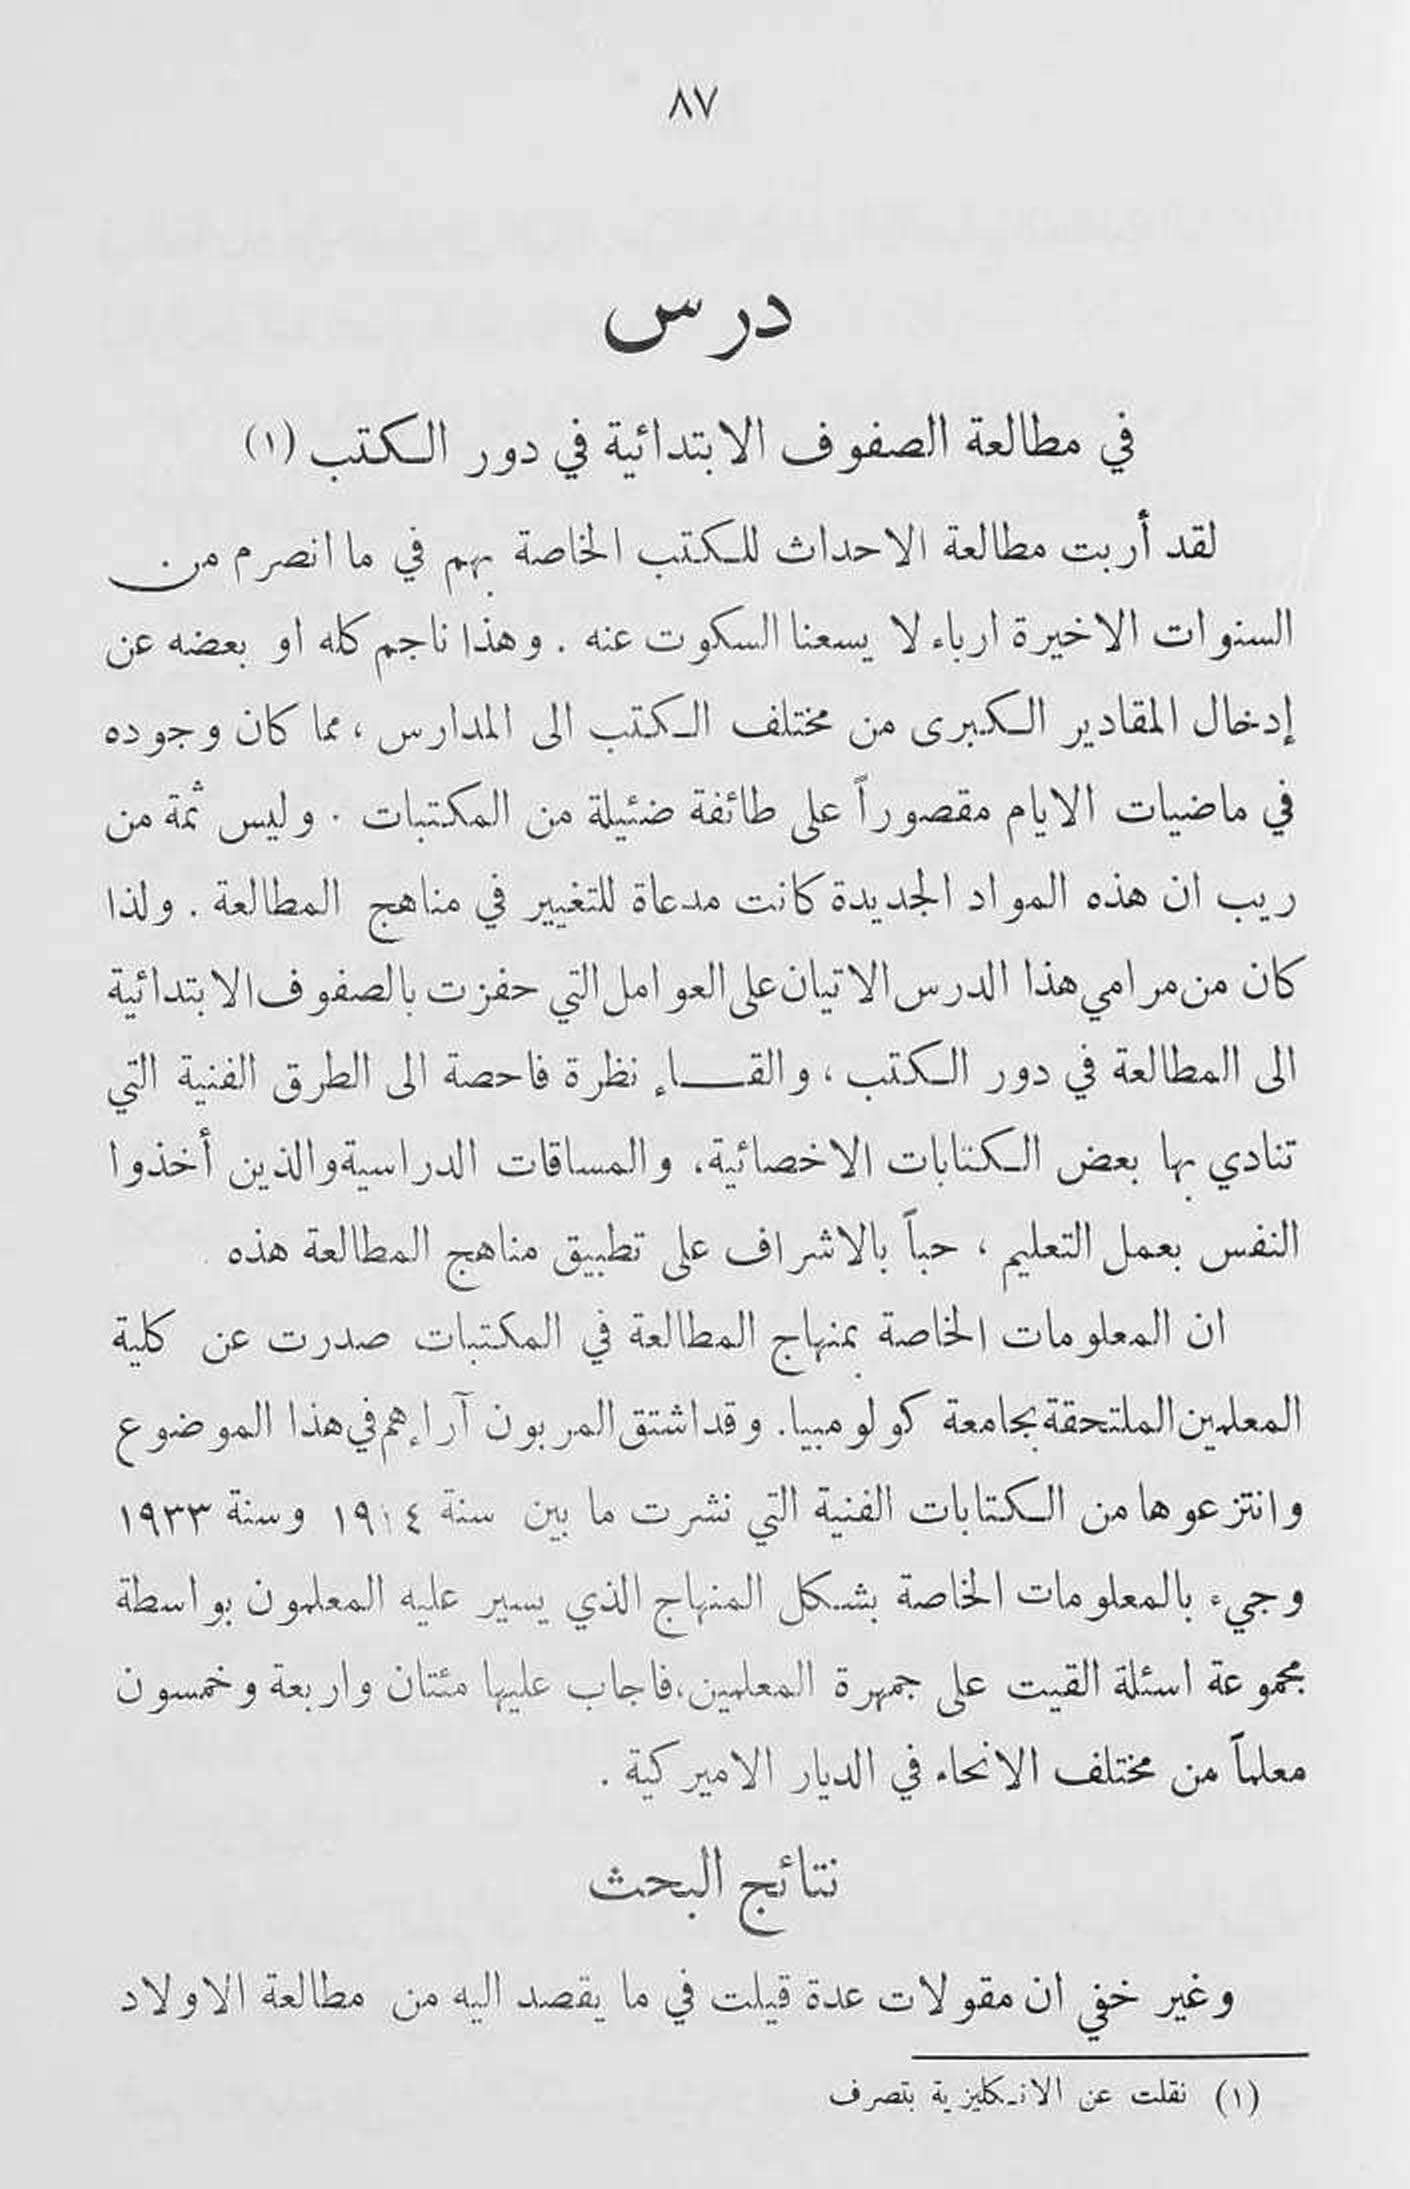 ٨٧
درس
في مطالعة الصفوف الابتدائية في دور الكتب (١)
لقد أربت مطالعة الاحداث للكتب الخاصة بهم في ما انصرم من
السنوات الاخيرة ارباء لا يسعنا السكوت عنه . وهذا ناجم كله او بعضه عن
إدخال المقادير الكبرى من مختلف الكتب الى المدارس ، مما كان وجوده
في ماضيات الايام مقصوراً على طائفة ضئيلة من المكتبات . وليس ثمة من
ريب ان هذه المواد الجديدة كانت مدعاة للتغيير في مناهج المطالعة . ولذا
كان من مرامي هذا الدرس الاتيان على العوامل التي حفزت بالصفوف الابتدائية
الى المطالعة في دور الكتب ، والقاء نظرة فاحصة الى الطرق الفنية التي
تنادي بها بعض الكتابات الاخصائية ، والمساقات الدراسية والذين أخذوا
النفس بعمل التعليم ، حباً بالاشراف على تطبيق مناهج المطالعة هذه .
ان المعلومات الخاصة بمنهاج المطالعة في المكتبات صدرت عن كلية
المعلمين الملتحقة بجامعة كولومبيا . وقد اشتق المربون آراءهم في هذا الموضوع
وانتزعوها من الكتابات الفنية التي نشرت ما بين سنة ١٩١٤ وسنة ١٩٣٣
وجيء بالمعلومات الخاصة بشكل المنهاج الذي يسير عليه المعلمون بواسطة
مجموعة اسئلة القيت على جمهرة المعلمين ، فاجاب عليها مئتان واربعة وخمسون
معلماً من مختلف الانحاء في الديار الاميركية .
نتائج البحث
وغير خفي ان مقولات عدة قيلت في ما يقصد اليه من مطالعة الاولاد
(١) نقلت عن الانكليزية بتصرف